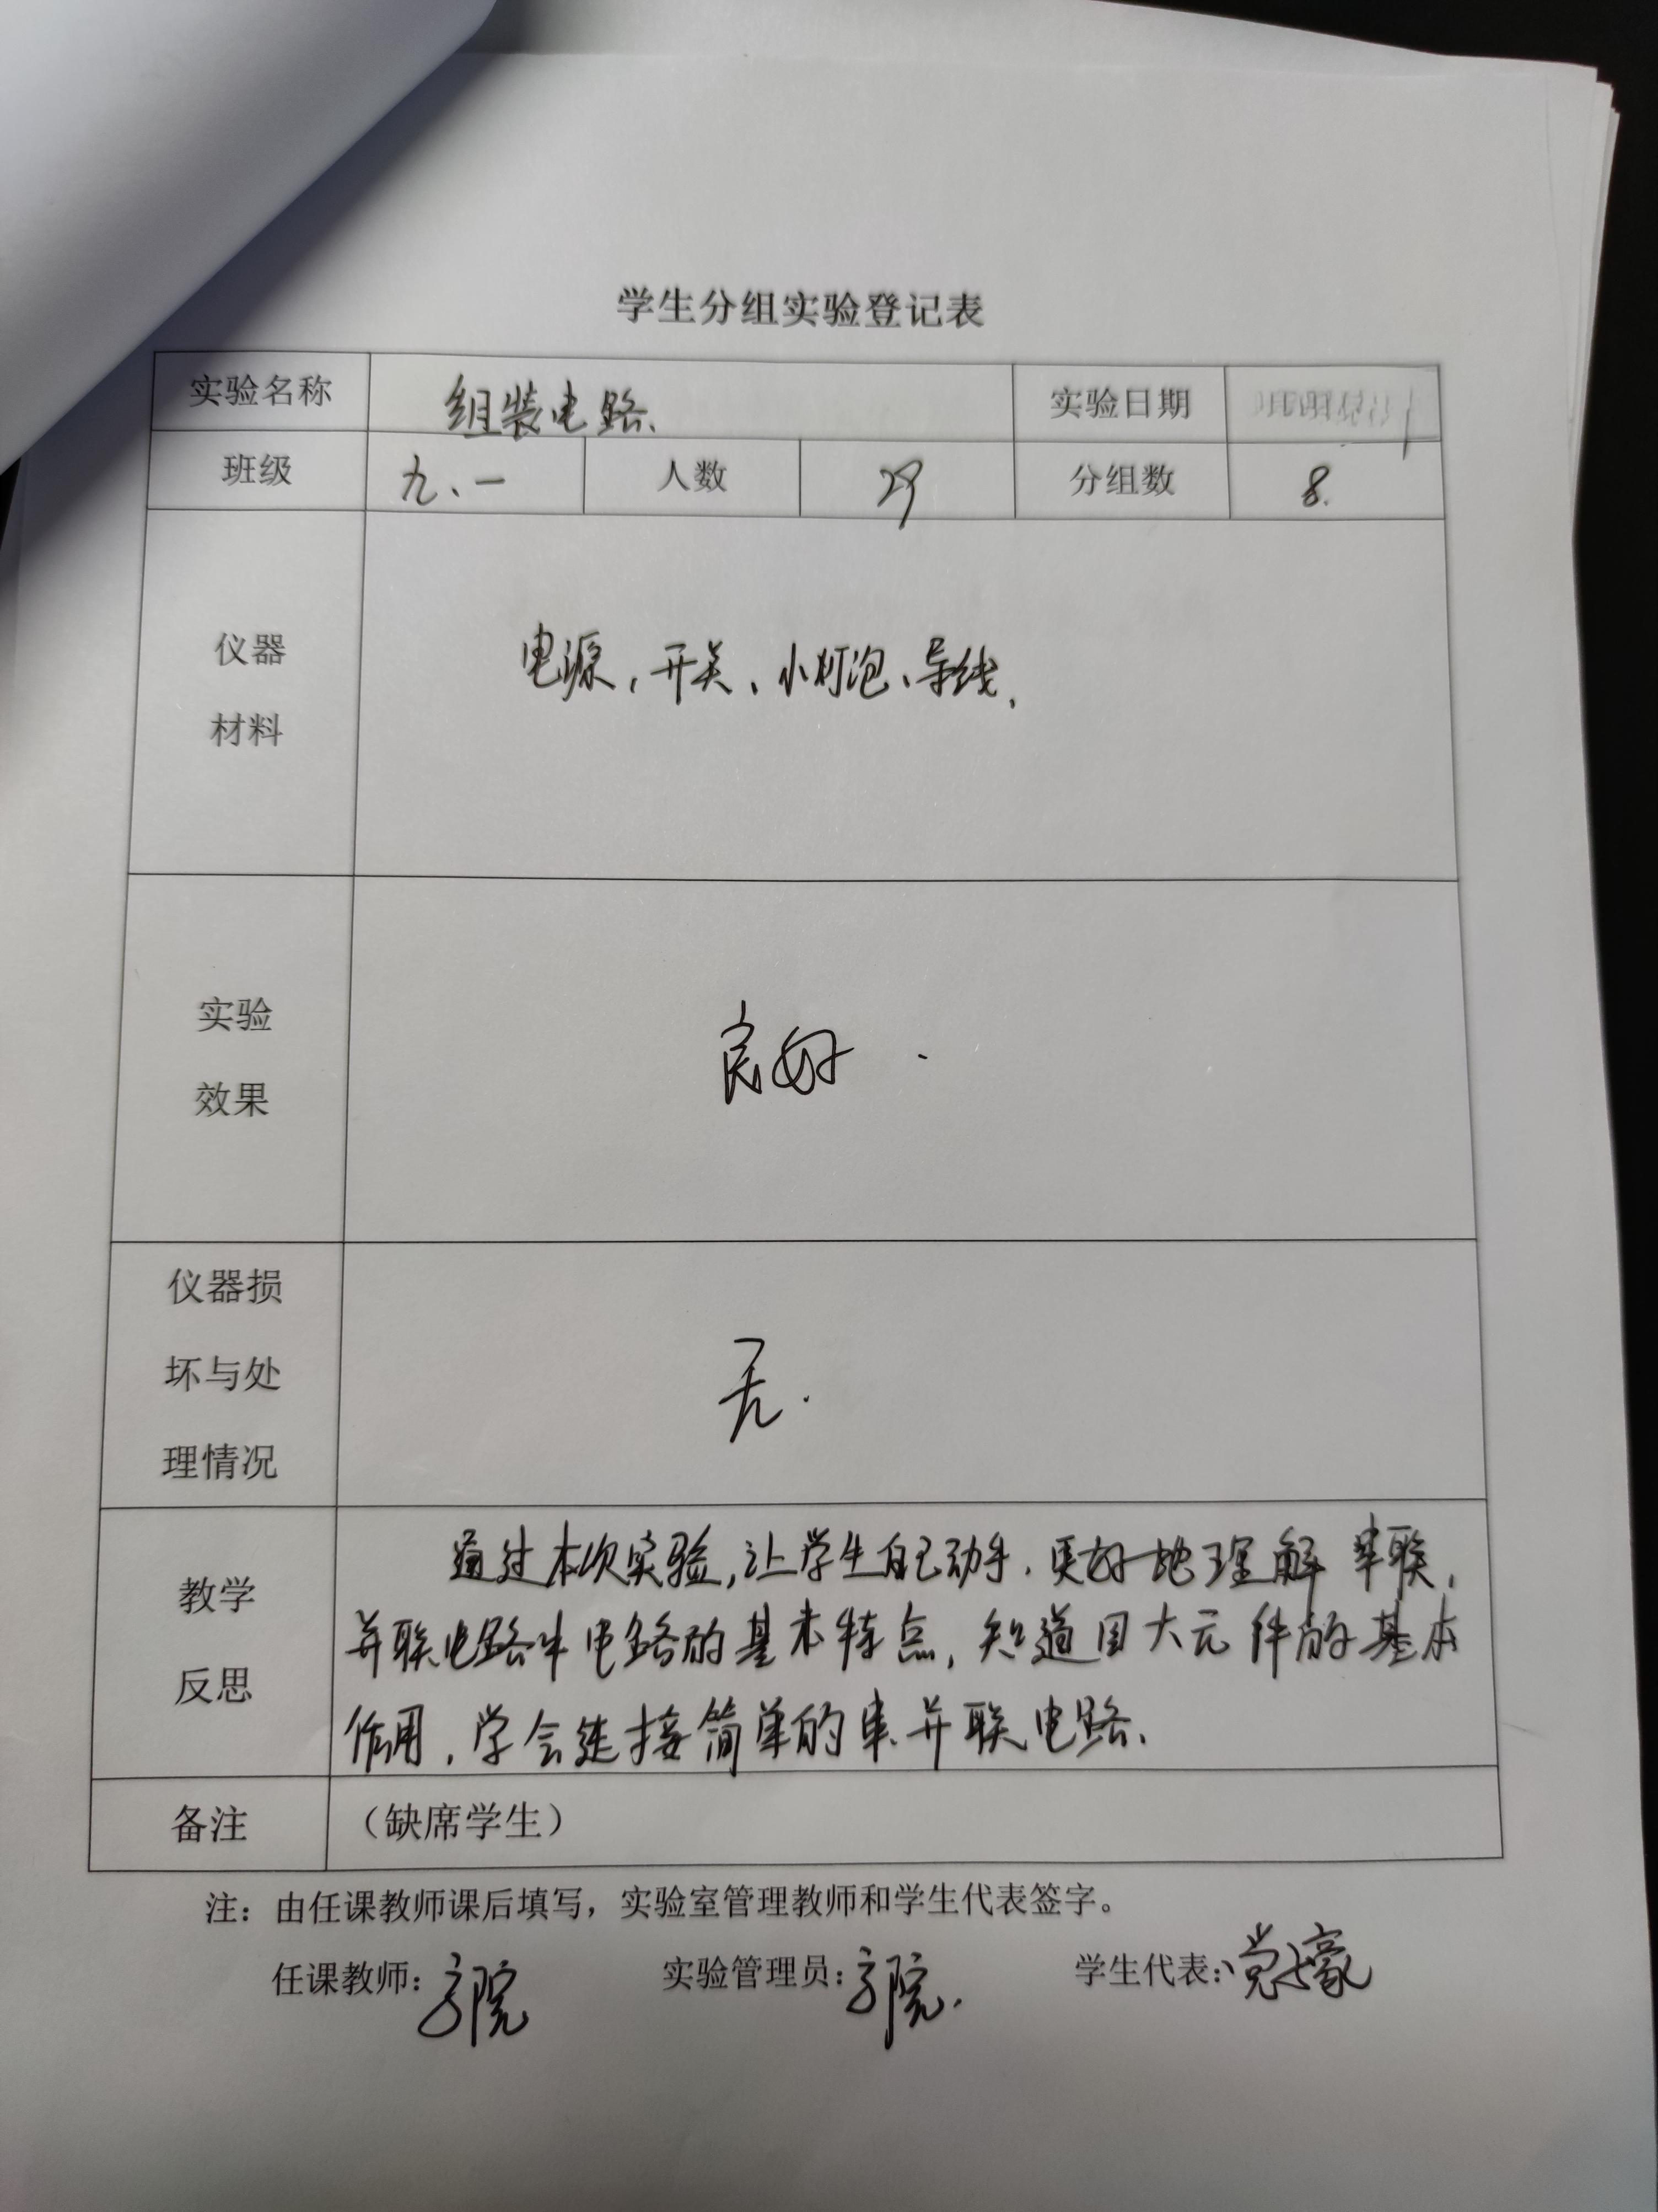 学生分组实验登记表
实验名称 组装电路. 实验日期
班级 九、一 人数 29 分组数 8.
仪器 电源, 开关、小灯泡、导线,
材料
实验 良好.
效果
仪器损
坏与处 无.
理情况
通过本次实验,让学生自己动手.更好地理解串联,
教学 并联电路中电路的基本特点,知道四大元件的基本
反思 作用,学会连接简单的串.并联电路.
备注 (缺席学生)
注：由任课教师课后填写，实验室管理教师和学生代表签字。
任课教师: 实验管理员: 学生代表: